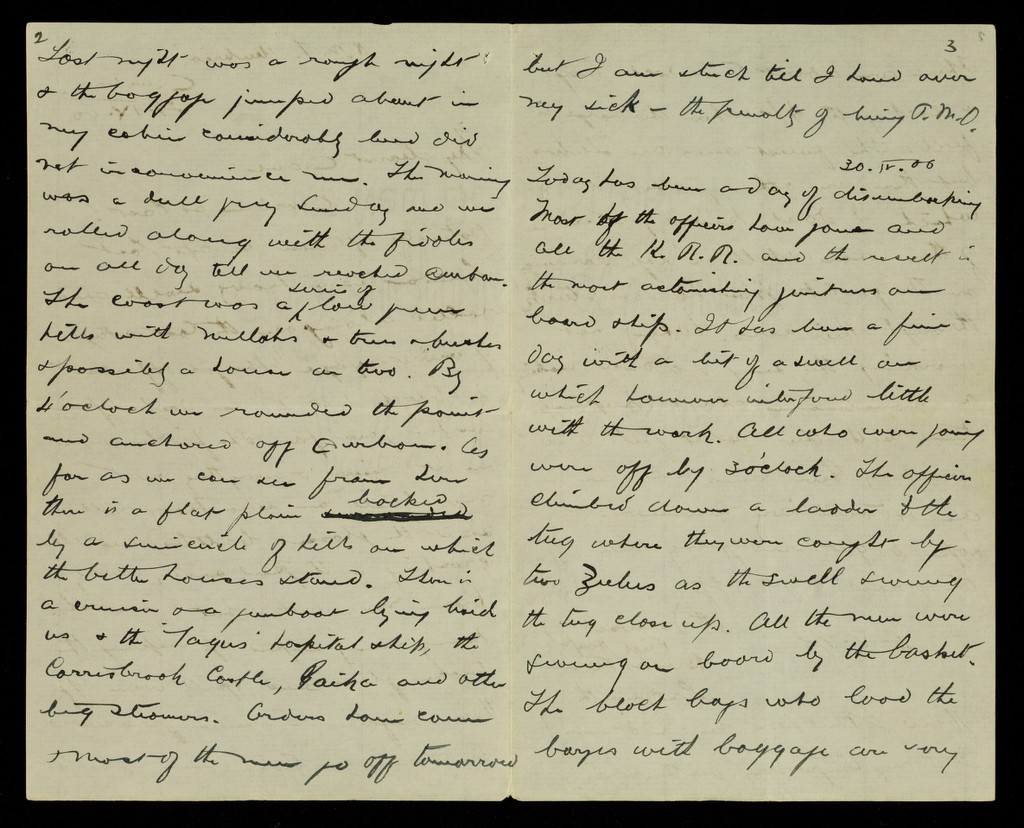 2
Last night was a rough night
& the baggage jumped about in
my cabin considerably but did
not inconvenience me. The morning
was a dull grey Sunday and we
rolled along with the fiddles
on all day till we reached Durban.
The coast was a series of low green
hills with nullahs & trees & bushes
& possibly a house or two. By
4 o'clock we rounded the point
and anchored off Durban. As
far as we can see from here
there is a flat plain backed
by a semicircle of hills on which
the better houses stand. There is
a cruiser or a gunboat lying beside
us & the 'Tagus' hospital ship, the
Carrisbrook Castle, and other
big steamers. Orders have come
& most of the men go off tomorrow
3
but I am stuck till I hand over
my sick – the penalty of being P.M.O.
30.IV.00
Today has been a day of disembarking
Most of the officers have gone and
all the K.R.R. and the result is
the most astonishing quietness on
board ship. It has been a fine
day with a bit of a swell on
which however interfered little
with the work. All who were going
were off by 3 o'clock. The officers
climbed down a ladder to the
tug where they were caught by
two Zulus as the swell swung
the tug close up. All the men were
swung on board by the basket.
The black boys who load the
barges with baggage are very